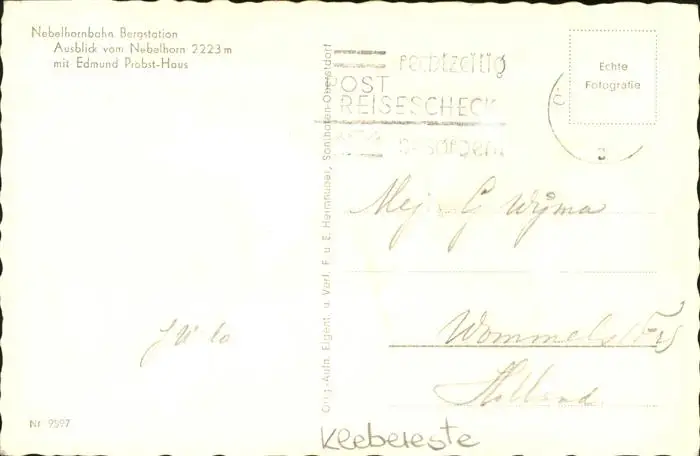 Nebelhornbahn Bergstation
Ausblick vom Nebelhorn 2223 m
mit Edmund Probst-Haus
Nr. 9597
Orig.-Aufn. Eigent. u. Verl. F. u. E. Heimhuber, Sonthofen-Oberstdorf
rechtzeitig
POST
REISESCHECK
besorgen
Echte
Fotografie
Mej. G Wijma
Wommels (Fr)
Holland
Klebereste